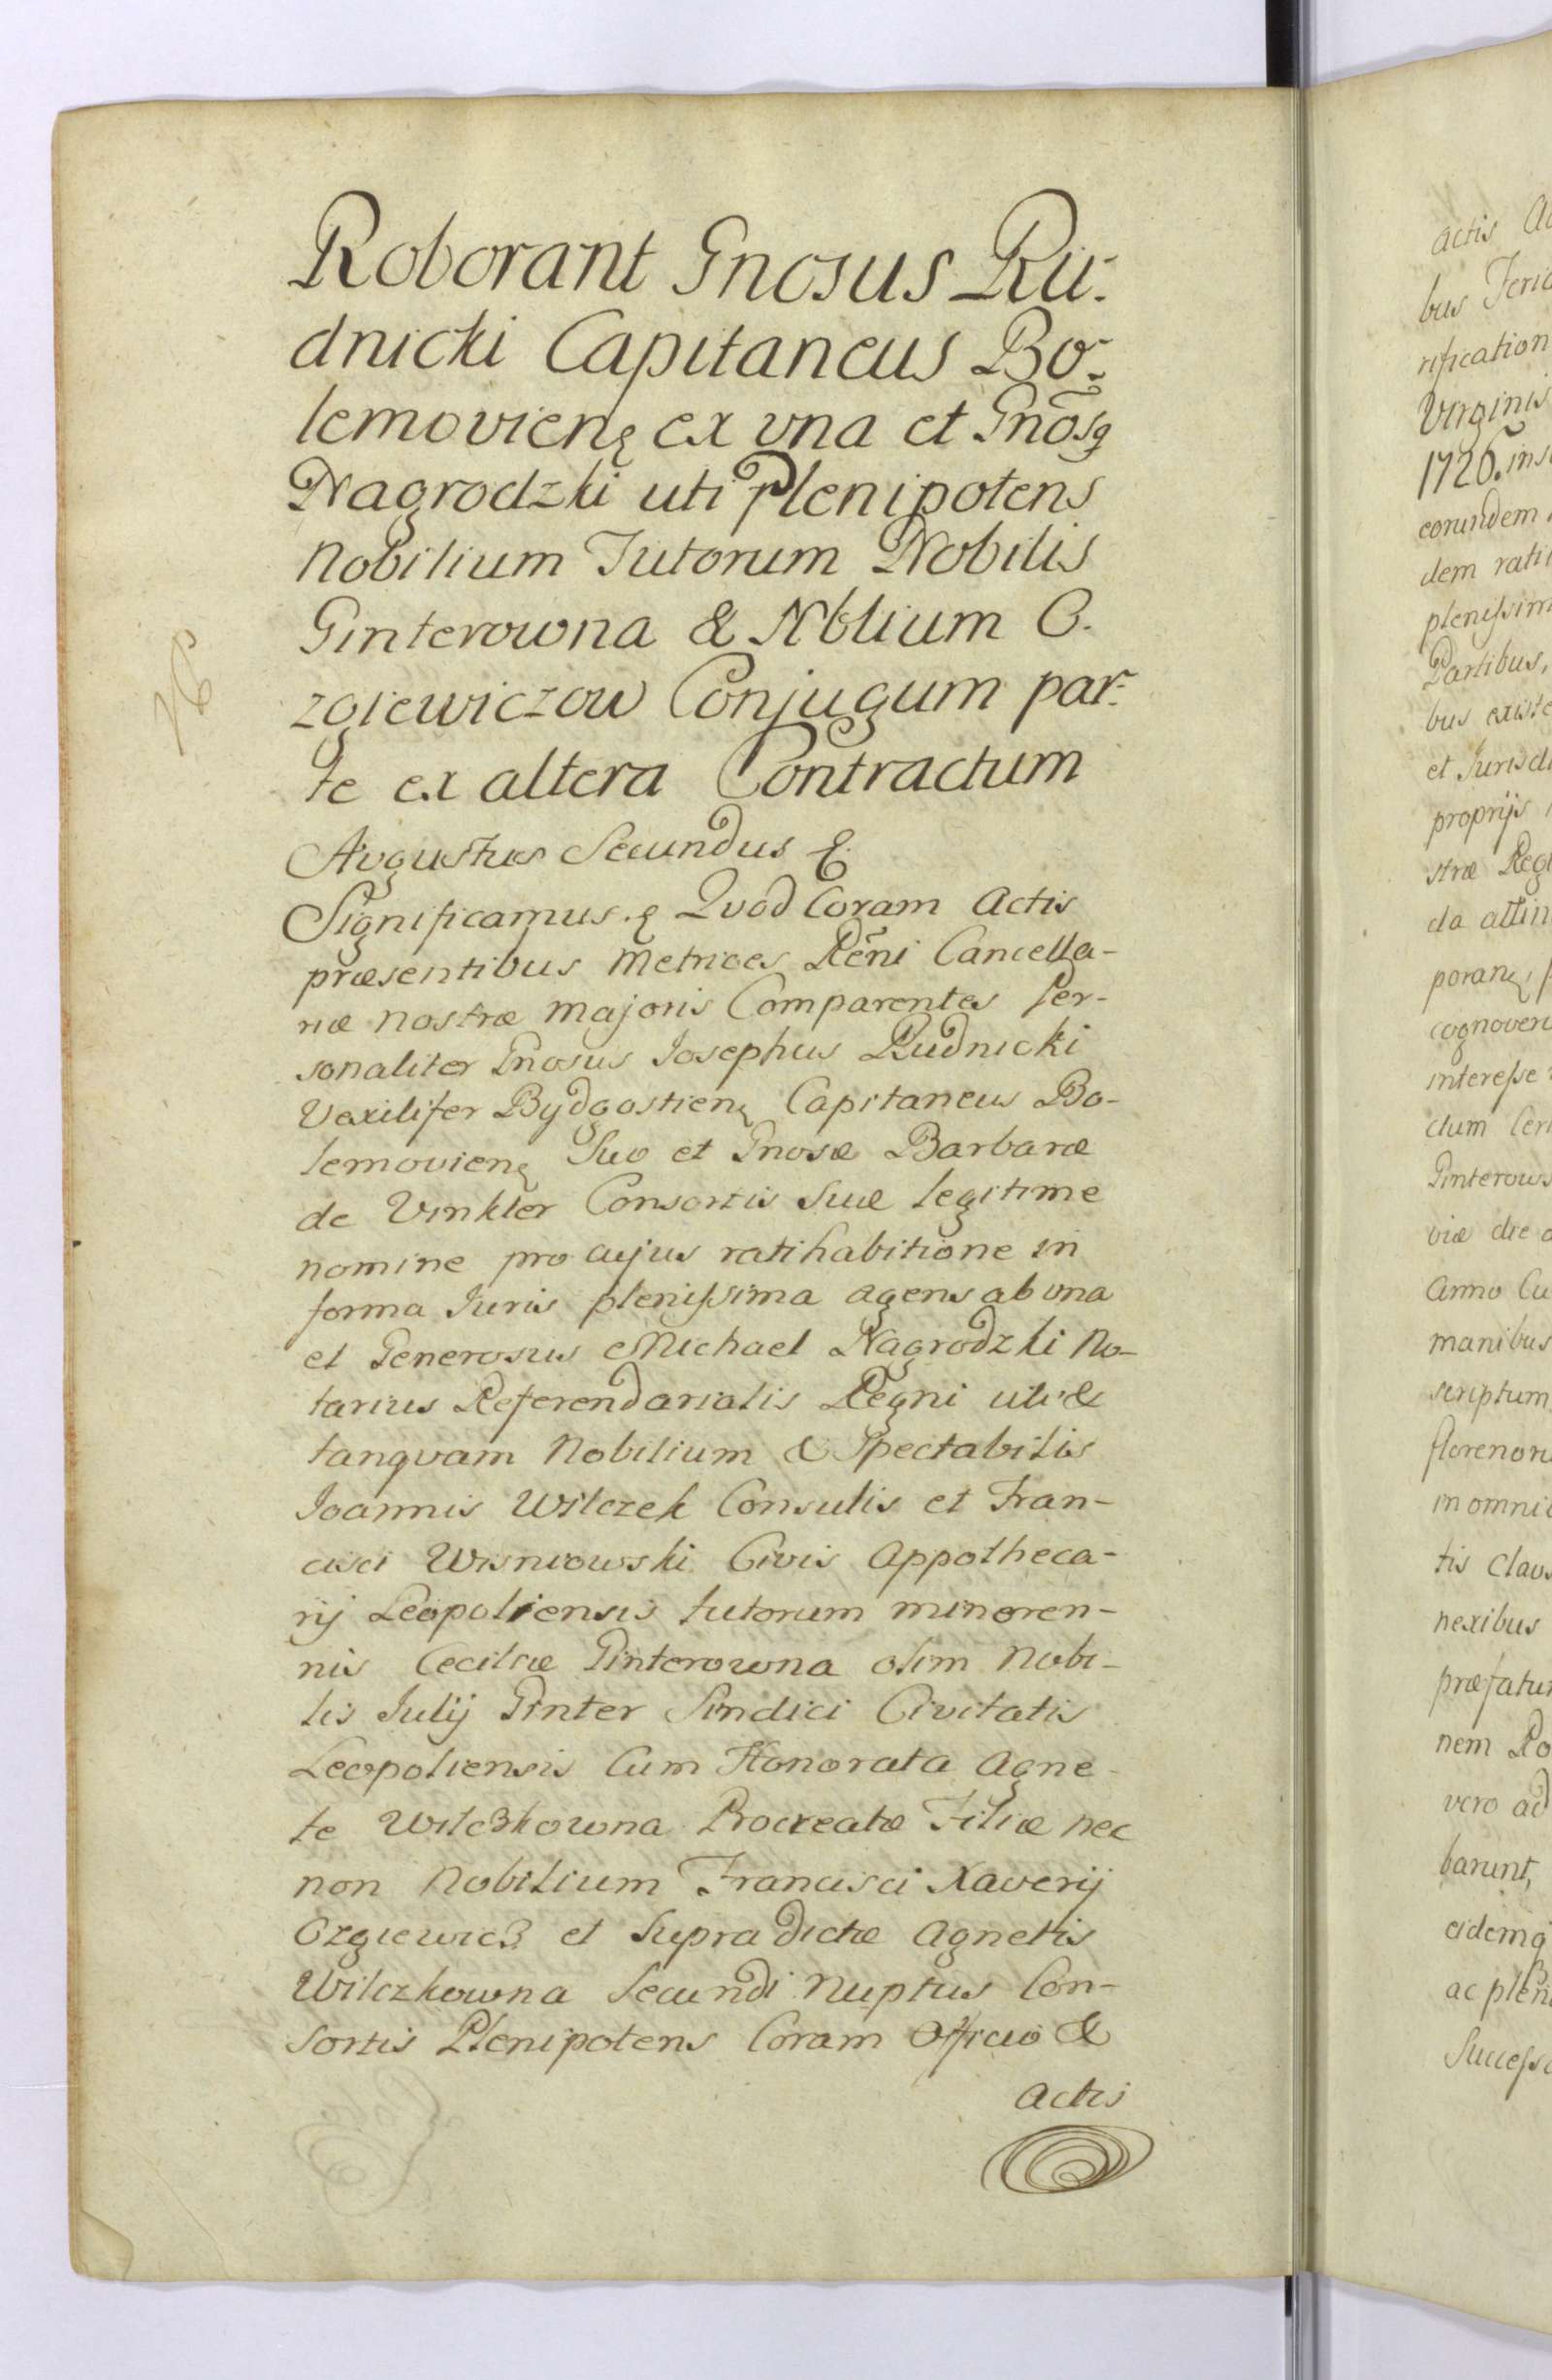 Roborant Gnosus Ru-
dnicki Capitaneus Bo-
lemovienę ex vna et Gnõsq
Nagrodzki uti Plenipotens
Nobilium Tutorum Nobilis
Ginterowna & Nblium O-
zgiewiczow Conjugum par-
te ex altera Contractum
Avgustus Secundus &
Significamus ę Qvod Coram Actis
præsentibus Metrices Rẽni Cancella-
riæ nostræ majoris Comparentes Per-
sonaliter Gnosus Iosephus Rudnicki
Vexilifer Bydgostienę Capitaneus Bo-
lemovienę Suo et Gnosæ Barbaræ
de Vinkler Consortis Suæ legitime
nomine pro cujus ratihabitione in
forma Iuris plenissima agens ab vna
et Generosus Michael Nagrodzki No-
tarius Referendarialis Regni uti &
tanqvam Nobilium & Spectabilis
Ioannis Wilczek Consulis et Fran-
cisci Wisniowski Civis Appotheca-
rij Leopoliensis tutorum minoren-
nis Ceciliæ Ginterowna olim Nobi-
lis Iulij Ginter Sindici Civitatis
Leopoliensis Cum Honorata Agne-
te Wilc3kowna Procreatæ Filiæ nec
non Nobilium Francisci Xaverij
Ozgiewic3 et Supra dictæ Agnetis
Wilczkowna Secundi Nuptus Con-
sortis Plenipotens Coram Officio &
Actis
actis
bus
rification
Virginis
1726.
eorundem
dem
plenissim
Partibus,
bus
et Jurisdi
proprijs
stræ
da
poranę,
cognover
interesse
ctum
Ginterows
viæ die
Anno
manibus
scriptum
florenor
in omni
tis
nexibus
præfatu
nem
vero ad
barunt,
eidemq
ac
Successo